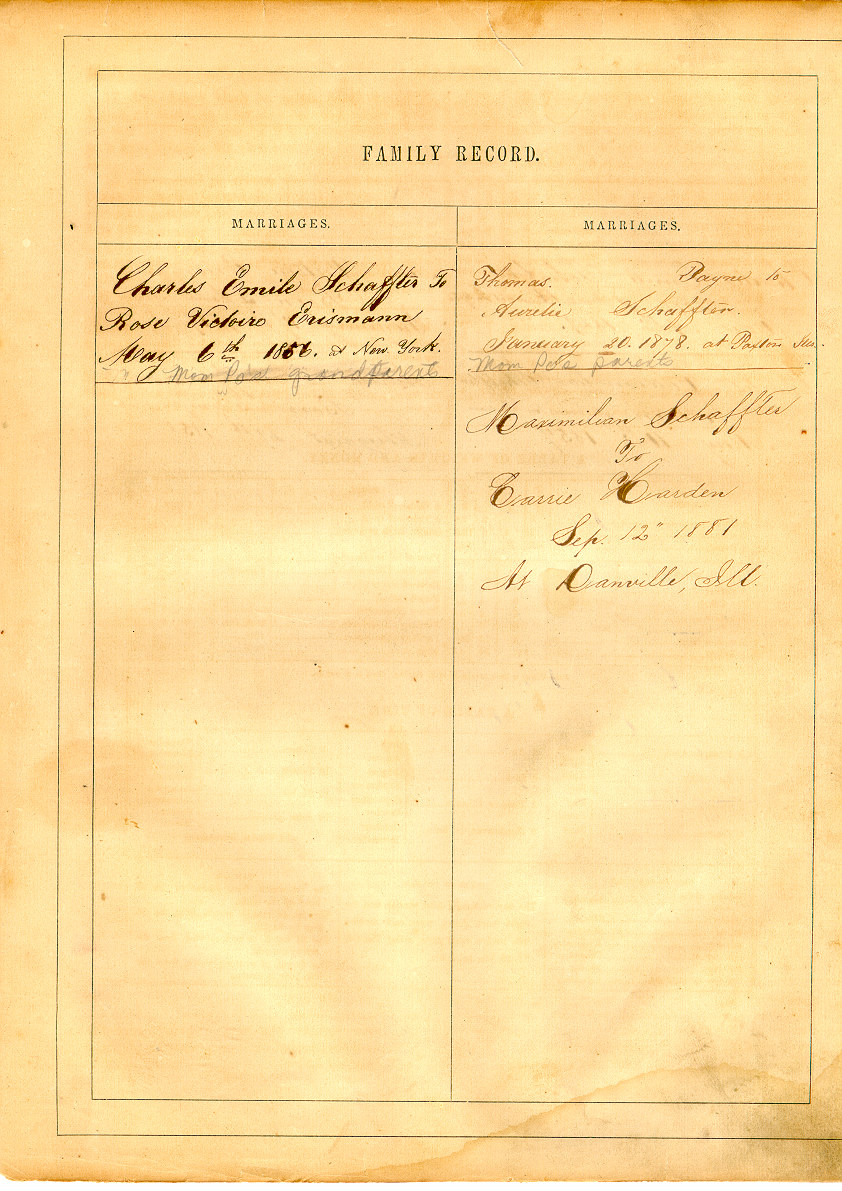 FAMILY RECORD.
MARRIAGES.
Charles Emile Schaffter To
Rose Victoire Erismann
May 6th 1856. at New York.
Mom Pa's grandparents
MARRIAGES.
Thomas. Payne to
Aurelie Schaffter.
January 20. 1878. at Paxton Ills.
Mom Pa's parents
Maximilian Schaffter
To
Carrie Harden
Sep. 12" 1881
At Danville, Ill.